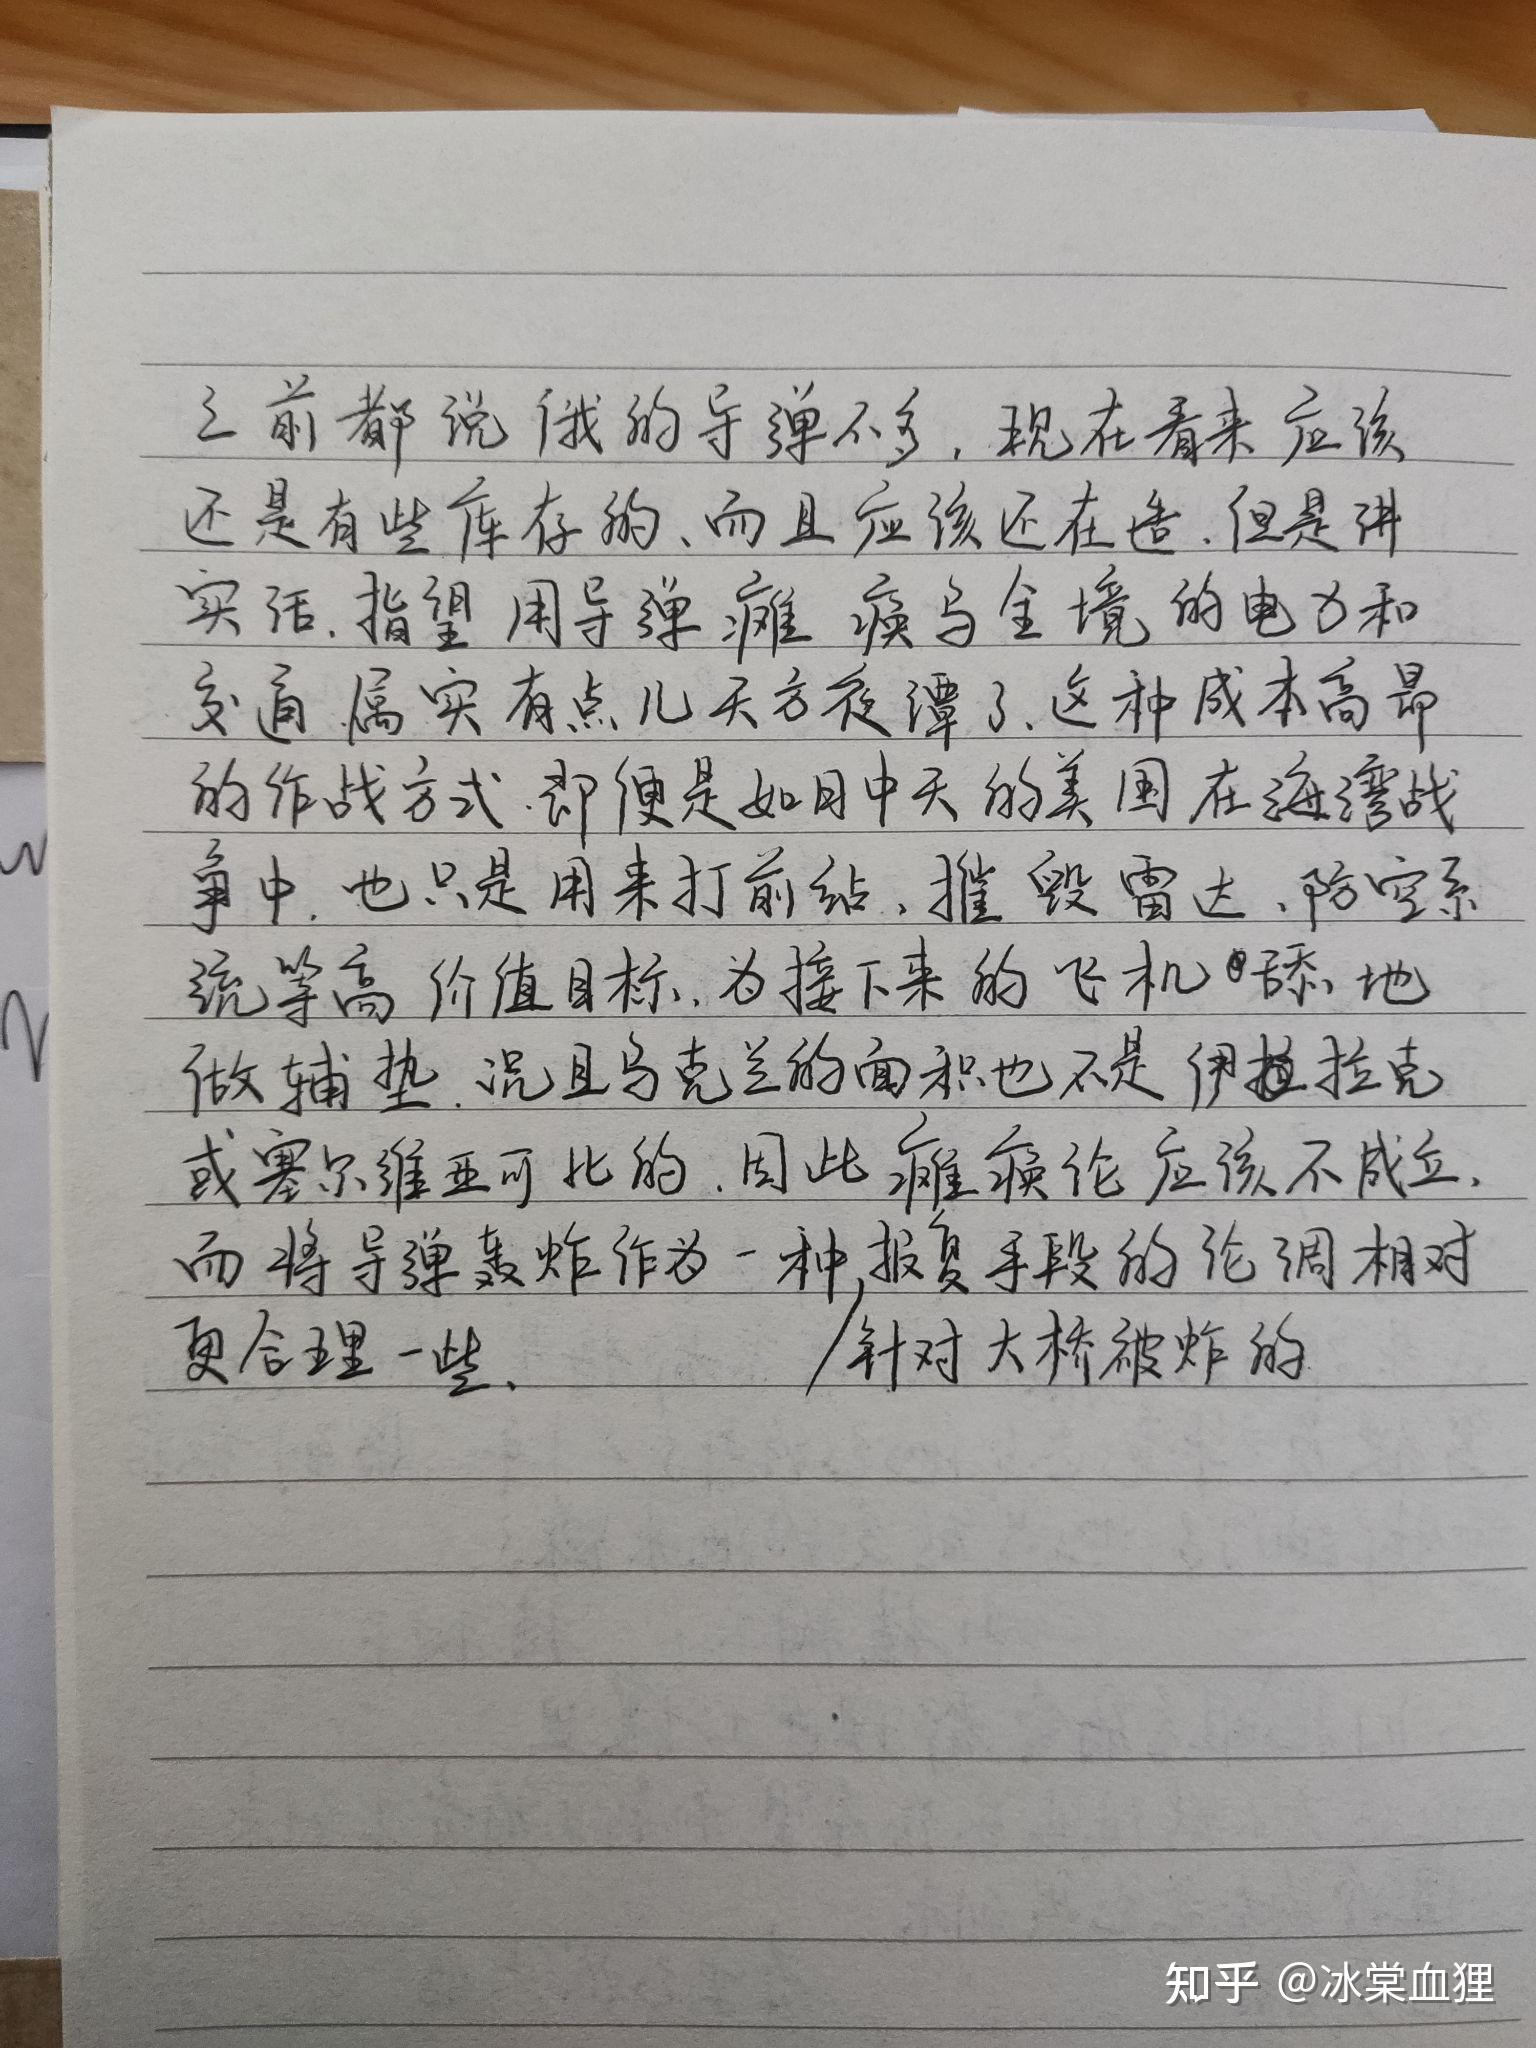 之前都说俄的导弹不多，现在看来应该
还是有些库存的、而且应该还在造.但是讲
实话.指望用导弹瘫痪乌全境的电力和
交通.属实有点儿天方夜谭了、这种成本高昂
的作战方式.即便是如日中天的美国在海湾战
争中.也只是用来打前站、摧毁雷达、防空系
统等高价值目标、为接下来的飞机舔地
做辅垫.况且乌克兰的面积也不是伊拉克
或塞尔维亚可比的.因此瘫痪论应该不成立、
而将导弹轰炸作为一种报复手段的论调相对
更合理一些、
针对大桥被炸的
知乎 @冰棠血狸